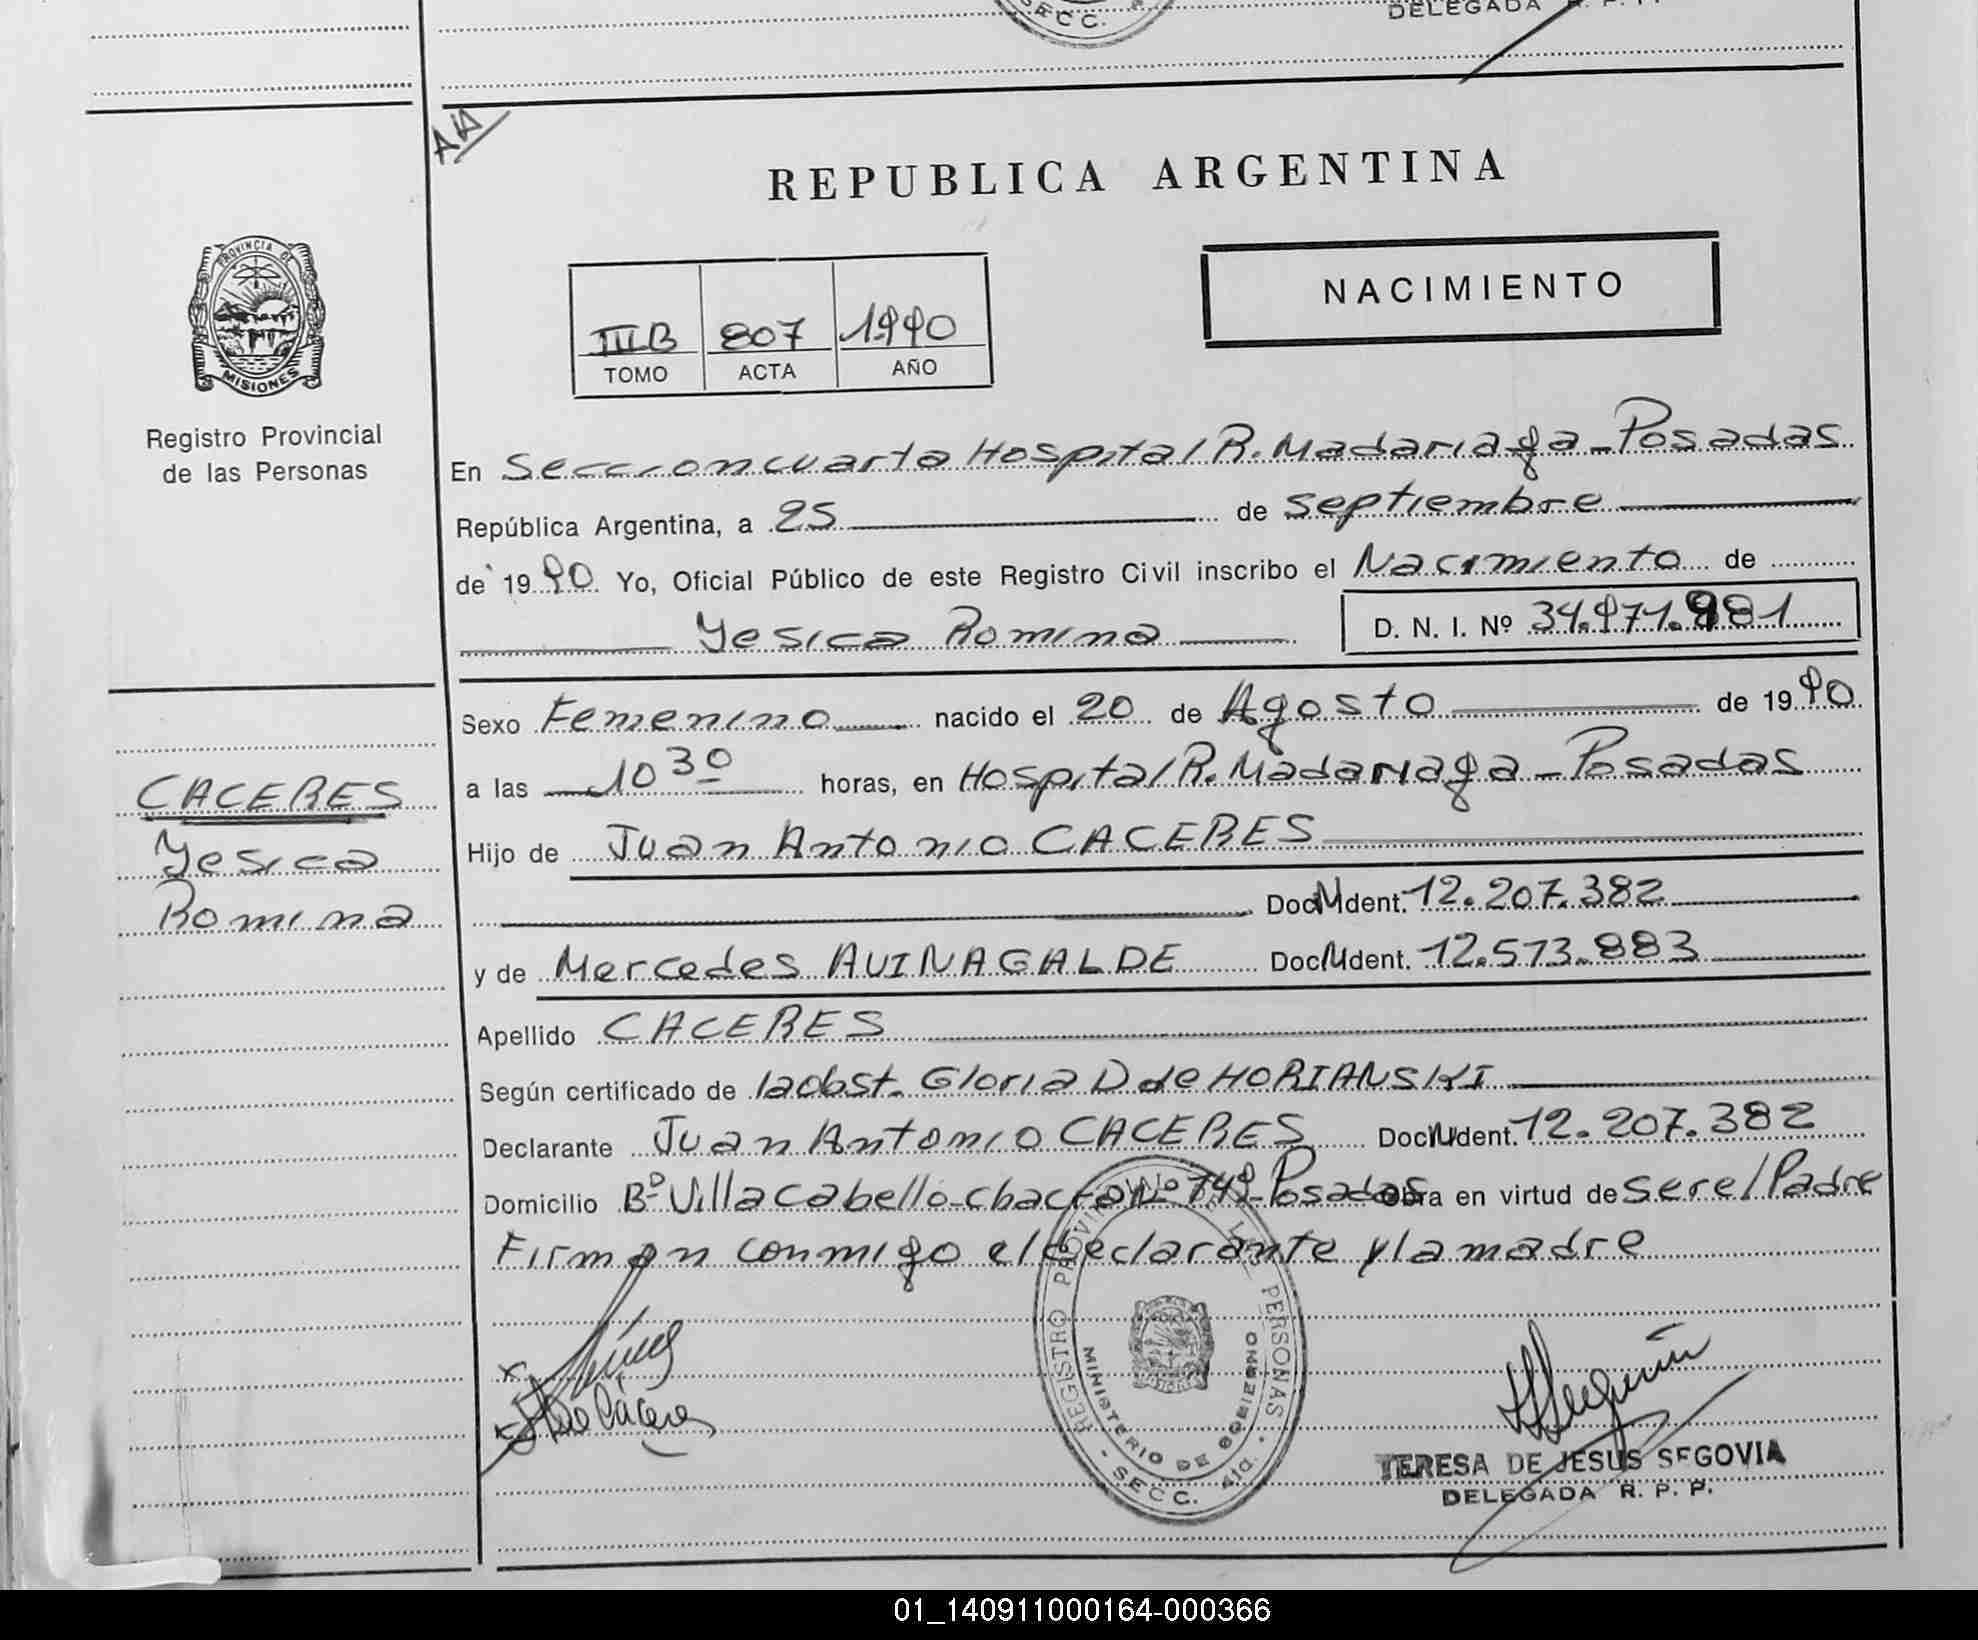 SECC.
DELEGADA R. P. P.
AIA
REPUBLICA ARGENTINA
PROVINCIA DE
MISIONES
Registro Provincial
de las Personas
III B 807 1990
TOMO ACTA AÑO
NACIMIENTO
En Seccion cuarta Hospital R. Madariaga - Posadas
República Argentina, a 25 de septiembre
de 1990 Yo, Oficial Público de este Registro Civil inscribo el Nacimiento de
Yesica Romina D. N. I. Nº 34.971.981
Sexo Femenino nacido el 20 de Agosto de 1990
a las 10 30 horas, en Hospital R. Madariaga - Posadas
CACERES
Yesica
Romina
Hijo de Juan Antonio CACERES
Doc M Ident. 12.207.382
y de Mercedes AVINAGALDE Doc M Ident. 12.573.883
Apellido CACERES
Según certificado de la obst. Gloria D de HORIANSKI
Declarante Juan Antonio CACERES Doc M Ident. 12.207.382
Domicilio Bº Villa Cabello - chacra Nº 149 - Posadas Obra en virtud de ser el Padre
Firman conmigo el declarante y la madre
REGISTRO PROVINCIAL DE LAS PERSONAS
MINISTERIO DE GOBIERNO
- SECC. 4ta. -
TERESA DE JESUS SEGOVIA
DELEGADA R. P. P.
01_140911000164-000366